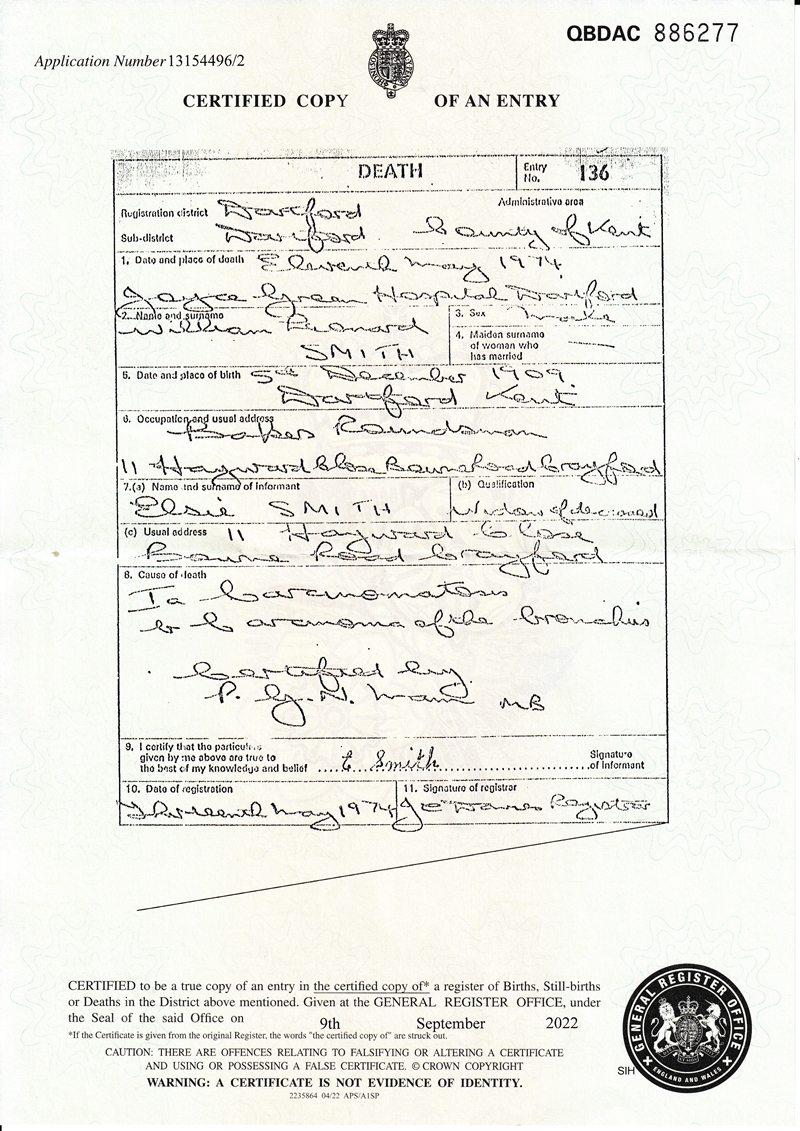 QBDAC 886277
Application Number 13154496/2
CERTIFIED COPY OF AN ENTRY
DEATH
Entry No. 136
Registration district Dartford
Administrative area
Sub-district Dartford County of Kent
1. Date and place of death Eleventh May 1974
Joyce Green Hospital Dartford
2. Name and surname
William Leonard
SMITH
3. Sex Male
4. Maiden surname
of woman who
has married
5. Date and place of birth 5th December 1909
Dartford Kent
6. Occupation and usual address
Bakers Roundsman
11 Hayward Close Bourne Road Crayford
7.(a) Name and surname of informant
Elsie SMITH
(b) Qualification
Widow of deceased
(c) Usual address 11 Hayward Close
Bourne Road Crayford
8. Cause of death
Ia Carcinomatosis
b Carcinoma of the bronchus
Certified by
P. G. N. MB
9. I certify that the particulars
given by me above are true to
the best of my knowledge and belief E Smith
Signature
of informant
10. Date of registration
Thirteenth May 1974
11. Signature of registrar
Registrar
CERTIFIED to be a true copy of an entry in the certified copy of* a register of Births, Still-births
or Deaths in the District above mentioned. Given at the GENERAL REGISTER OFFICE, under
the Seal of the said Office on 9th September 2022
*If the Certificate is given from the original Register, the words "the certified copy of" are struck out.
CAUTION: THERE ARE OFFENCES RELATING TO FALSIFYING OR ALTERING A CERTIFICATE
AND USING OR POSSESSING A FALSE CERTIFICATE. © CROWN COPYRIGHT
WARNING: A CERTIFICATE IS NOT EVIDENCE OF IDENTITY.
2235864 04/22 APS/A1SP
SIH
GENERAL REGISTER OFFICE
ENGLAND AND WALES